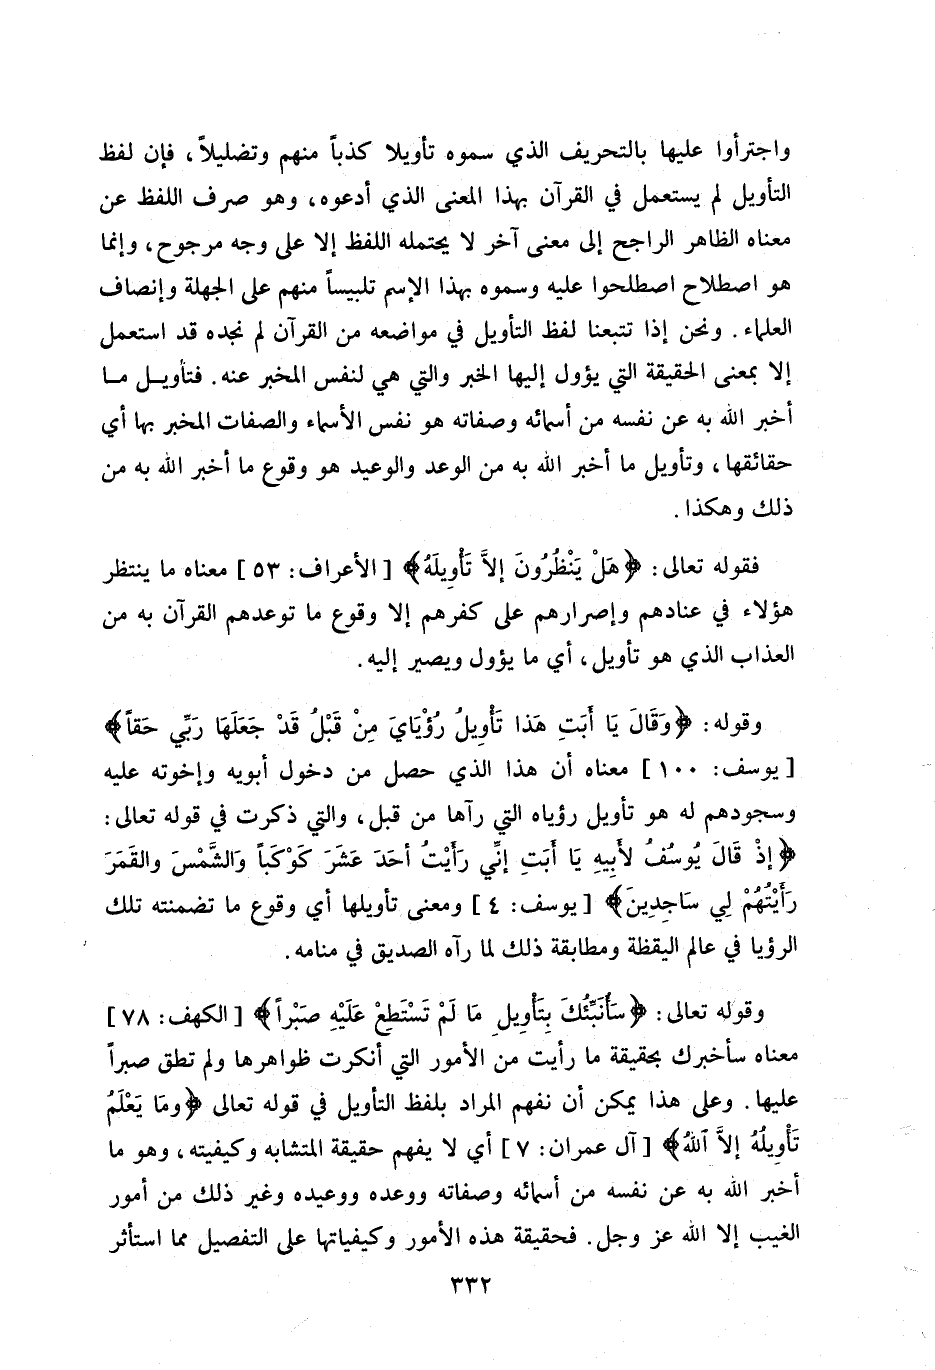 واجترأوا عليها بالتحريف الذي سموه تأويلا كذباً منهم وتضليلاً، فإن لفظ
التأويل لم يستعمل في القرآن بهذا المعنى الذي أدعوه، وهو صرف اللفظ عن
معناه الظاهر الراجح إلى معنى آخر لا يحتمله اللفظ إلا على وجه مرجوح، وإنما
هو اصطلاح اصطلحوا عليه وسموه بهذا الإسم تلبيساً منهم على الجهلة وإنصاف
العلماء. ونحن إذا تتبعنا لفظ التأويل في مواضعه من القرآن لم نجده قد استعمل
إلا بمعنى الحقيقة التي يؤول إليها الخبر والتي هي لنفس المخبر عنه. فتأويـل مـا
أخبر الله به عن نفسه من أسمائه وصفاته هو نفس الأسماء والصفات المخبر بها أي
حقائقها، وتأويل ما أخبر الله به من الوعد والوعيد هو وقوع ما أخبر الله به من
ذلك وهكذا.
فقوله تعالى: ﴿هَلْ يَنْظُرُونَ إلاَّ تَأْوِيلَهُ﴾ [الأعراف: ٥٣] معناه ما ينتظر
هؤلاء في عنادهم وإصرارهم على كفرهم إلا وقوع ما توعدهم القرآن به من
العذاب الذي هو تأويل، أي ما يؤول ويصير إليه.
وقوله: ﴿وَقَالَ يَا أَبَتِ هَذا تَأْوِيلُ رُؤْيَايَ مِنْ قَبْلُ قَدْ جَعَلَهَا رَبِّي حَقاً﴾
[يوسف: ١٠٠] معناه أن هذا الذي حصل من دخول أبويه وإخوته عليه
وسجودهم له هو تأويل رؤياه التي رآها من قبل، والتي ذكرت في قوله تعالى:
﴿إذْ قَالَ يُوسُفُ لأَبِيهِ يَا أَبَتِ إنِّي رَأَيْتُ أحَدَ عَشَرَ كَوْكَباً وَالشَّمْسَ والقَمَرَ
رَأَيْتُهُمْ لِي سَاجِدِينَ﴾ [يوسف: ٤] ومعنى تأويلها أي وقوع ما تضمنته تلك
الرؤيا في عالم اليقظة ومطابقة ذلك لما رآه الصديق في منامه.
وقوله تعالى: ﴿سَأُنَبِّئُكَ بِتَأْوِيلِ مَا لَمْ تَسْتَطِعْ عَلَيْهِ صَبْراً﴾ [الكهف: ٧٨]
معناه سأخبرك بحقيقة ما رأيت من الأمور التي أنكرت ظواهرها ولم تطق صبراً
عليها. وعلى هذا يمكن أن نفهم المراد بلفظ التأويل في قوله تعالى ﴿ومَا يَعْلَمُ
تَأْوِيلُهُ إلاَّ اَللهُ﴾ [آل عمران: ٧] أي لا يفهم حقيقة المتشابه وكيفيته، وهو ما
أخبر الله به عن نفسه من أسمائه وصفاته ووعده ووعيده وغير ذلك من أمور
الغيب إلا الله عز وجل. فحقيقة هذه الأمور وكيفياتها على التفصيل مما استأثر
٣٣٢